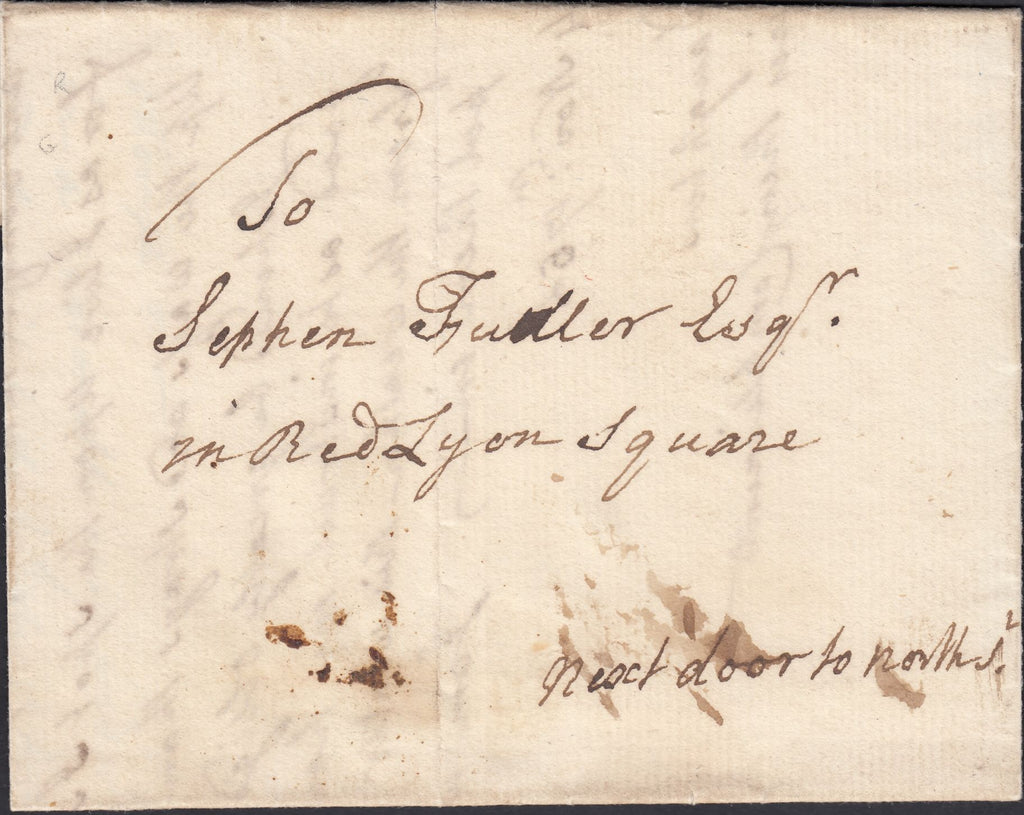 To
Sephen Fuller Esqr.
in Red Lyon Square
next door to north st.
R
G